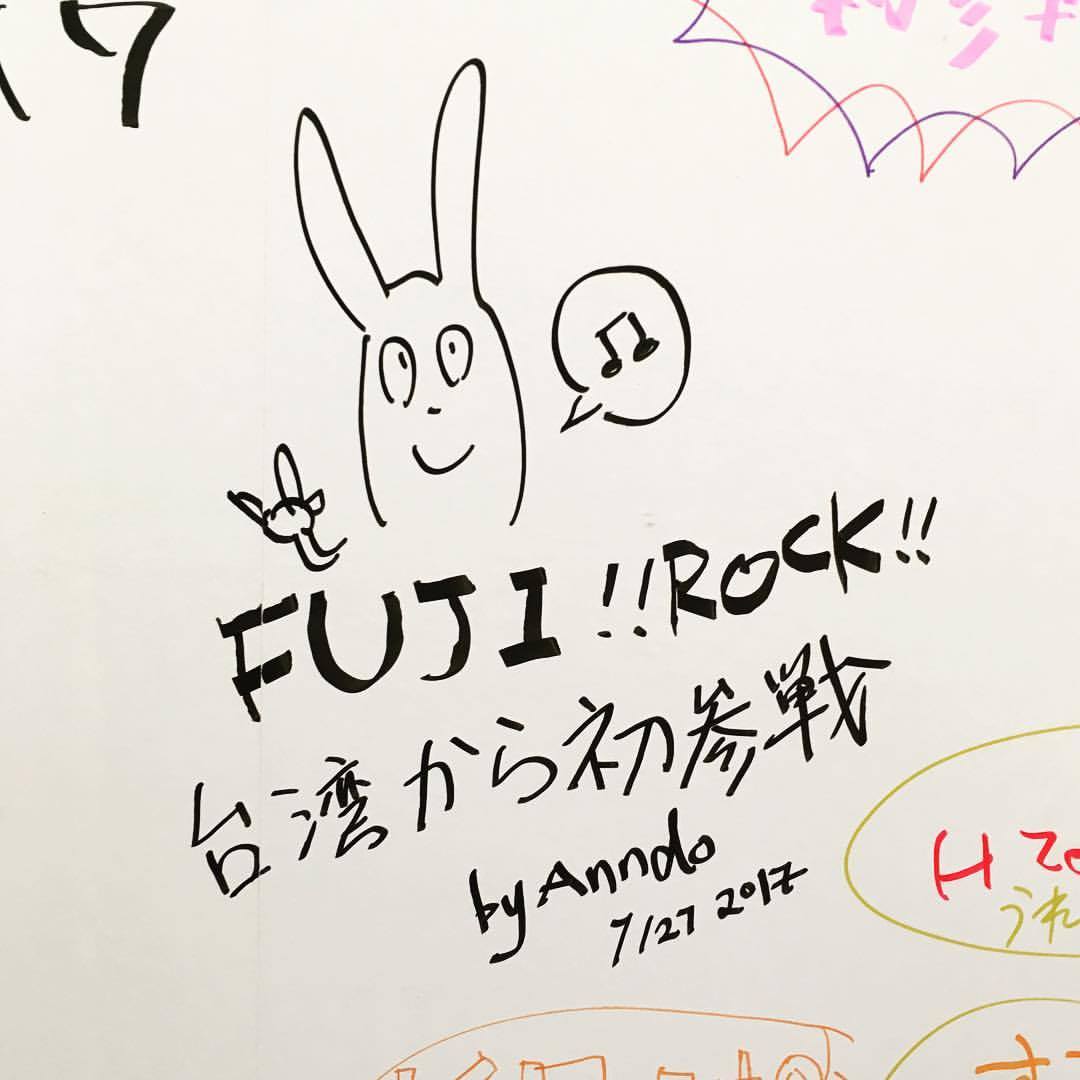 FUJI!!ROCK!!
台湾から初参戦
by Anndo
7/27 2017
うれ